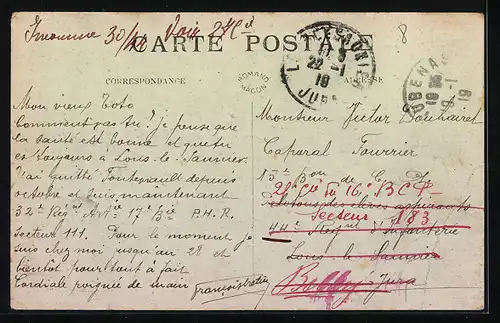 Inconnu 30/12 Voir 28e Cie
8
CARTE POSTALE
CORRESPONDANCE
ADRESSE
ROMAND MÂCON
22 -1
19
JURA
AUBENAS
19 -1
19
Mon vieux Toto
Comment vas tu? Je pense que
ta santé est bonne et que tu
es toujours à Lons le Saunier.
J'ai quitté Fontevrault depuis
octobre et suis maintenant
32e Régt Artie 17e Bie P.H.R.
Secteur 111. Pour le moment je
suis chez moi jusqu'au 28 et
bientôt pour tout à fait
Cordiale poignée de main
Monsieur Victor
Caporal Fourrier
15e Bon de
28e Cie du 16e B C P
Peloton des élèves aspirants
Secteur 183
44e Régmt d'Infanterie
Lons le Saunier
Jura